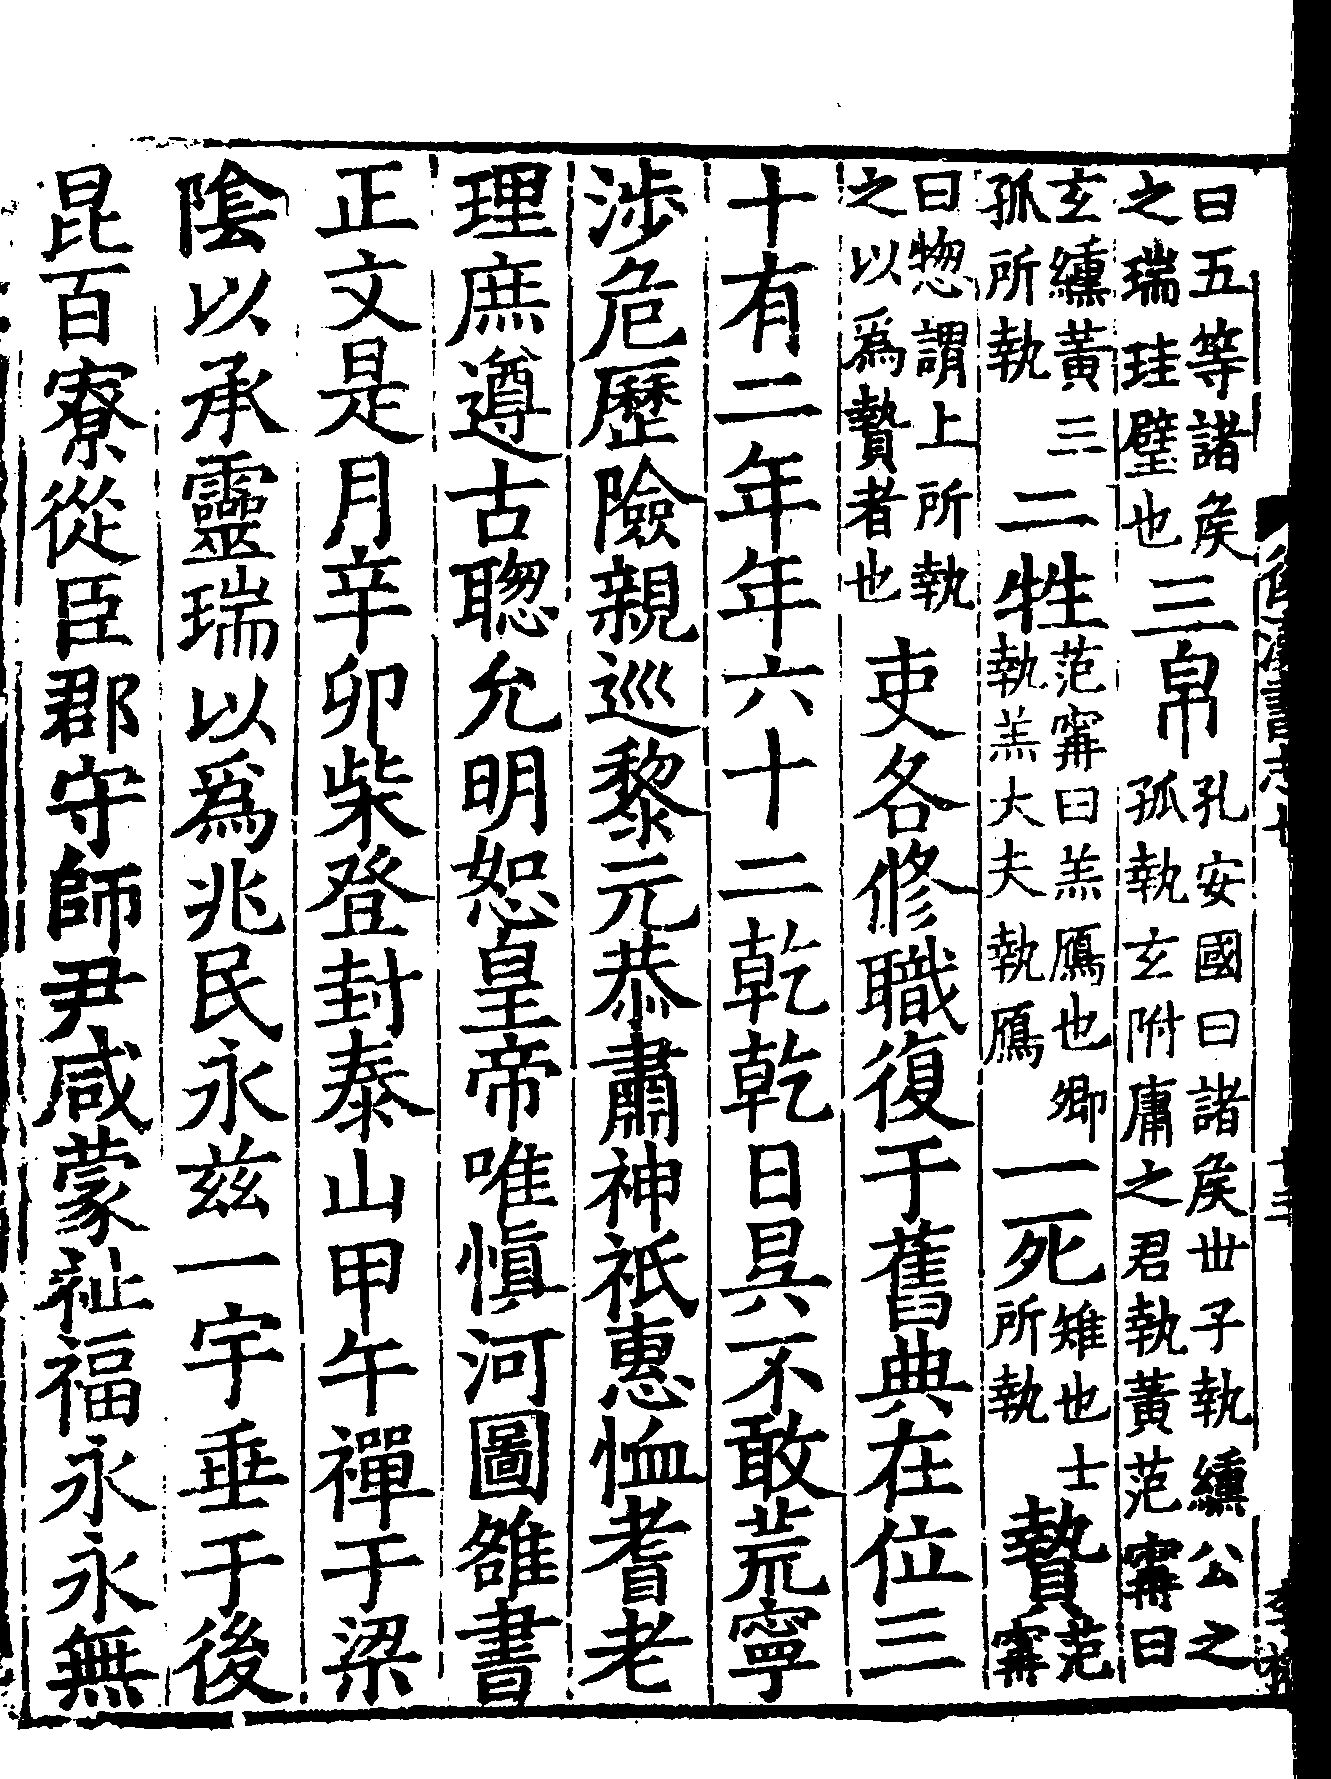 曰五等諸侯之瑞珪璧也三帛孔安國曰諸侯世子執纁公之孤執玄附庸之君執黃范甯曰
玄纁黃三孤所執二牲范甯曰羔鴈也卿執羔大夫執鴈一死雉也士所執贄范甯
曰惣謂上所執之以爲贄者也吏各修職復于舊典在位三
十有二年年六十二乾乾日昃不敢荒寧
涉危歷險親巡黎元恭肅神祇惠恤耆老
理庶遵古聦允明恕皇帝唯慎河圖雒書
正文是月辛卯柴登封泰山甲午禪于梁
陰以承靈瑞以爲兆民永兹一宇垂于後
昆百寮從臣郡守師尹咸蒙祉福永永無